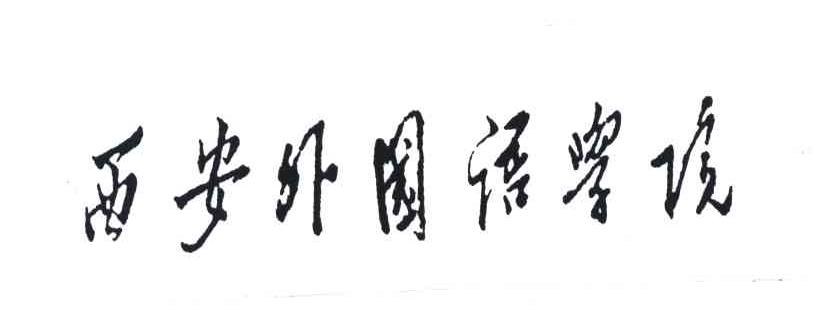 西安外國语學院